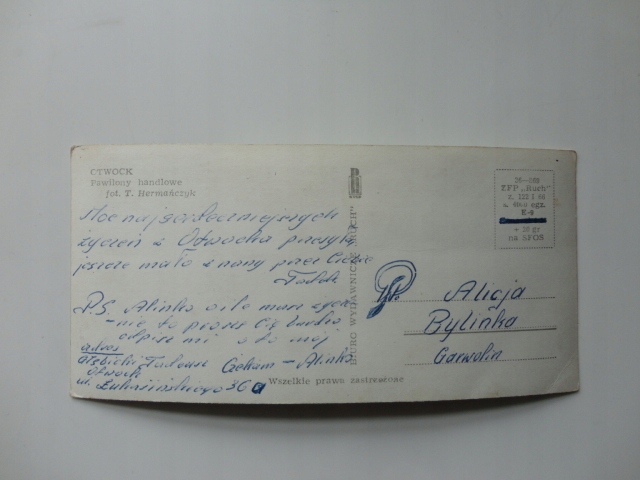 OTWOCK
Pawilony handlowe
fot. T. Hermańczyk
Moc najserdeczniejszych
życzeń z Otwocka przesyła
jeszcze mało znany przez Ciebie
Tadek
P.S. Alinko o ile masz życze-
nie to proszę Cię bardzo
odpisz mi oto mój
adres
Tadeusz Czekam – Alinko
Otwock
ul. 36a
BIURO WYDAWNICZE „RUCH”
Wszelkie prawa zastrzeżone
ZFP „Ruch”
K-9
+ 20 gr
na SFOS
Alicja
Bylinka
Garwolin